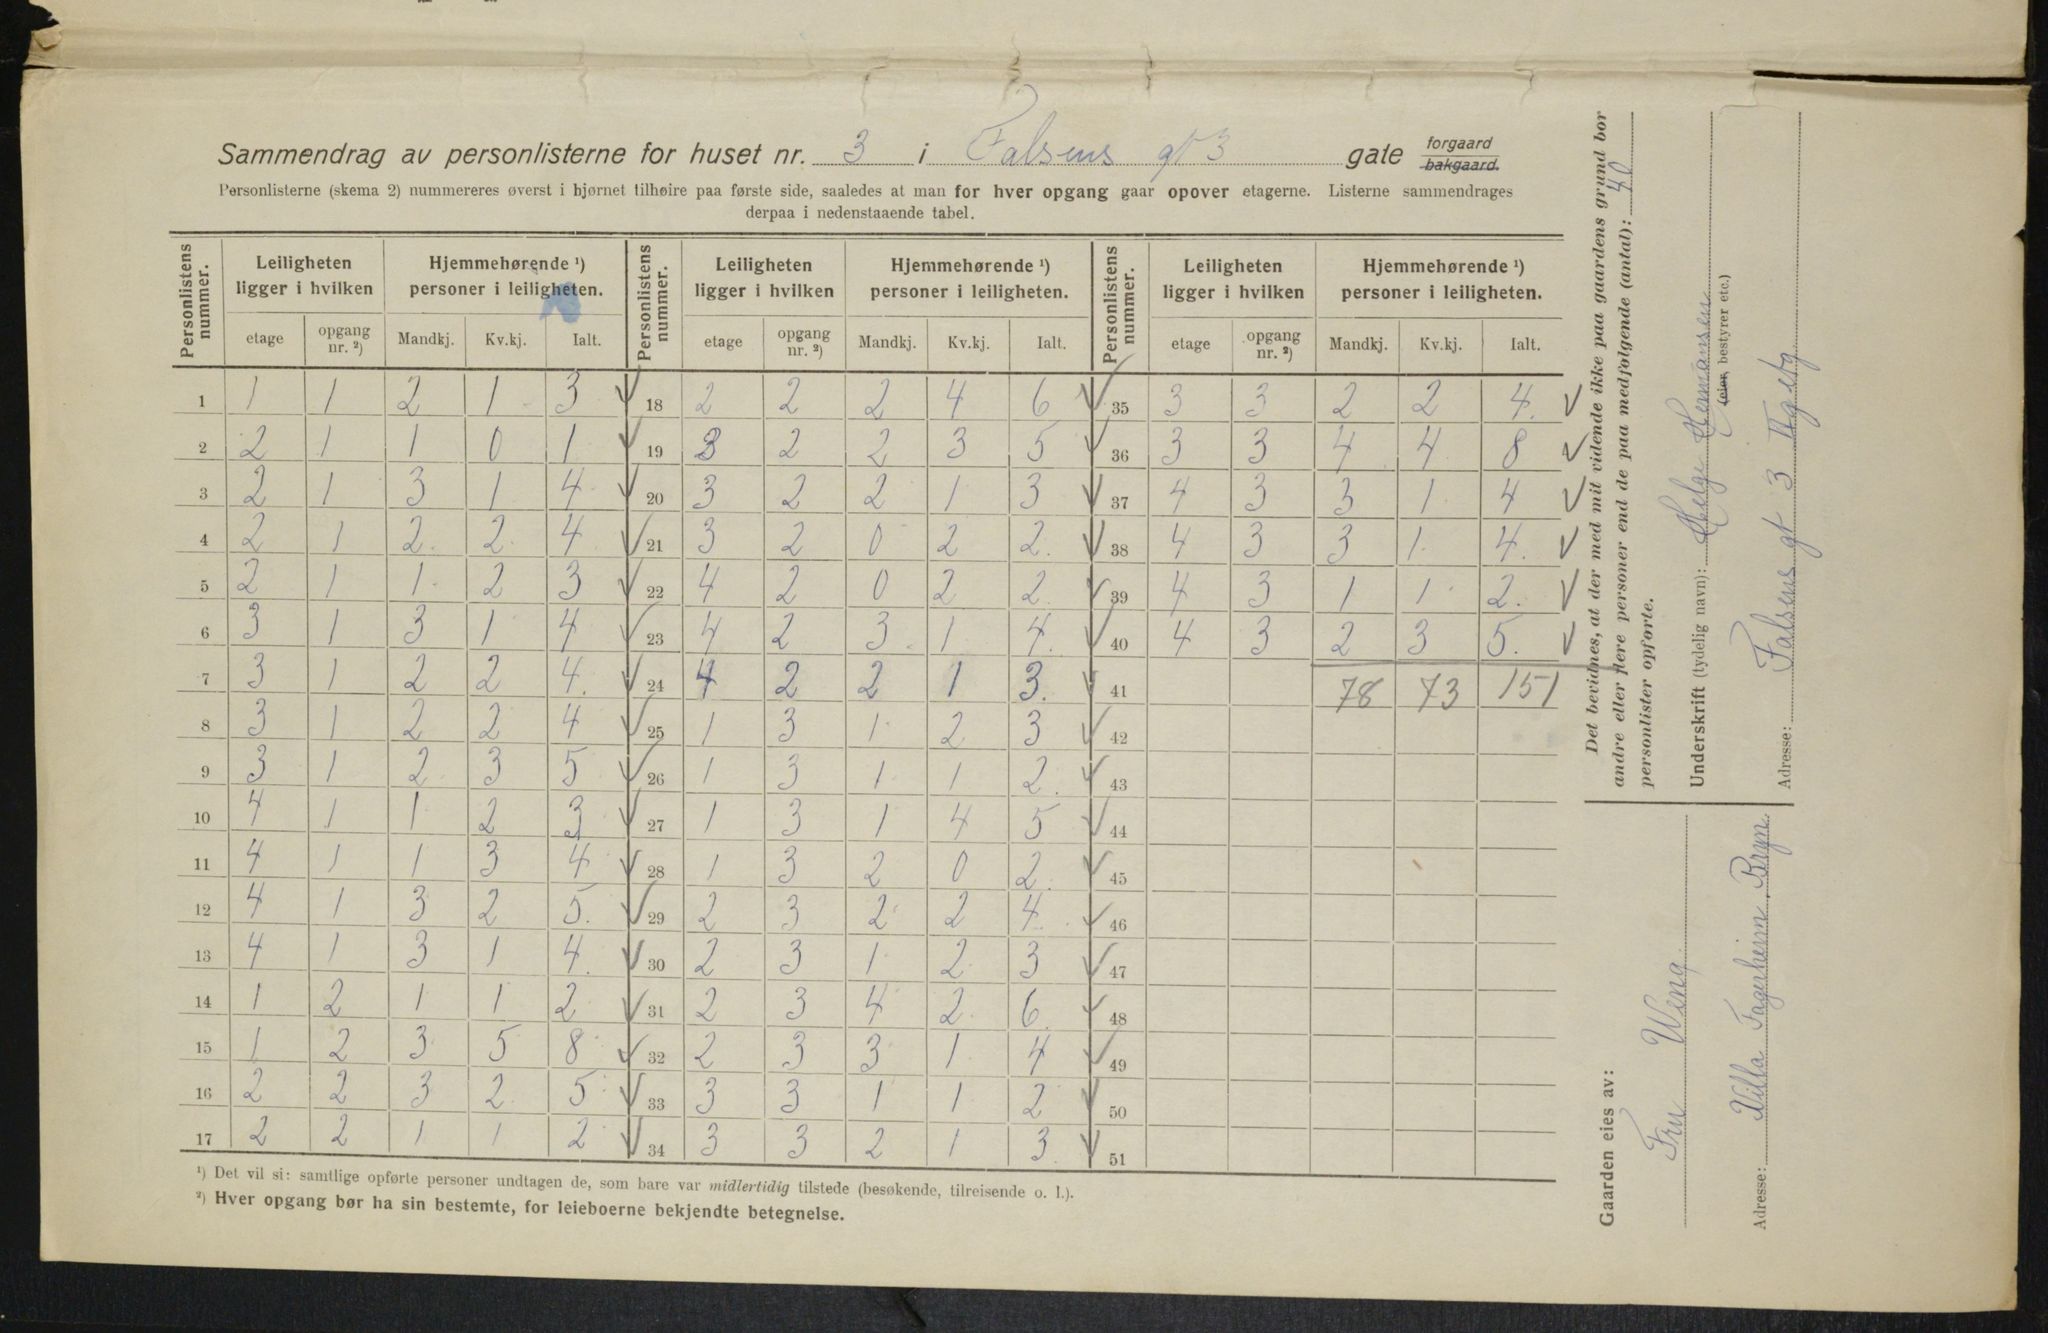 Sammendrag av personlisterne for huset nr. 3 i Falsens gt 3 gate forgaard bakgaard.
Personlisterne (skema 2) nummereres øverst i hjørnet tilhøire paa første side, saaledes at man for hver opgang gaar opover etagerne. Listerne sammendrages
derpaa i nedenstaaende tabel.
Personlistens nummer. Leiligheten ligger i hvilken Hjemmehørende ¹) personer i leiligheten. Personlistens nummer. Leiligheten ligger i hvilken Hjemmehørende ¹) personer i leiligheten. Personlistens nummer. Leiligheten ligger i hvilken Hjemmehørende ¹) personer i leiligheten.
etage opgang nr. ²) Mandkj. Kv.kj. Ialt. etage opgang nr. ²) Mandkj. Kv.kj. Ialt. etage opgang nr. ²) Mandkj. Kv.kj. Ialt.
1 1 1 2 1 3 18 2 2 2 4 6 35 3 3 2 2 4
2 2 1 1 0 1 19 3 2 2 3 5 36 3 3 4 4 8
3 2 1 3 1 4 20 3 2 2 1 3 37 4 3 3 1 4
4 2 1 2 2 4 21 3 2 0 2 2 38 4 3 3 1 4
5 2 1 1 2 3 22 4 2 0 2 2 39 4 3 1 1 2
6 3 1 3 1 4 23 4 2 3 1 4 40 4 3 2 3 5
7 3 1 2 2 4 24 4 2 2 1 3 41 78 73 151
8 3 1 2 2 4 25 1 3 1 2 3 42
9 3 1 2 3 5 26 1 3 1 1 2 43
10 4 1 1 2 3 27 1 3 1 4 5 44
11 4 1 1 3 4 28 1 3 2 0 2 45
12 4 1 3 2 5 29 2 3 2 2 4 46
13 4 1 3 1 4 30 2 3 1 2 3 47
14 1 2 1 1 2 31 2 3 4 2 6 48
15 1 2 3 5 8 32 2 3 3 1 4 49
16 2 2 3 2 5 33 3 3 1 1 2 50
17 2 2 1 1 2 34 3 3 2 1 3 51
¹) Det vil si: samtlige opførte personer undtagen de, som bare var midlertidig tilstede (besøkende, tilreisende o. l.).
²) Hver opgang bør ha sin bestemte, for leieboerne bekjendte betegnelse.
Det bevidnes, at der med mit vidende ikke paa gaardens grund bor
andre eller flere personer end de paa medfølgende (antal): 40
personlister opførte.
Underskrift (tydelig navn): Helge Hermansen
(eier, bestyrer etc.)
Adresse: Falsens gt 3 II
Gaarden eies av:
Fru Weng
Adresse: Villa Fagerheim, Bryn.